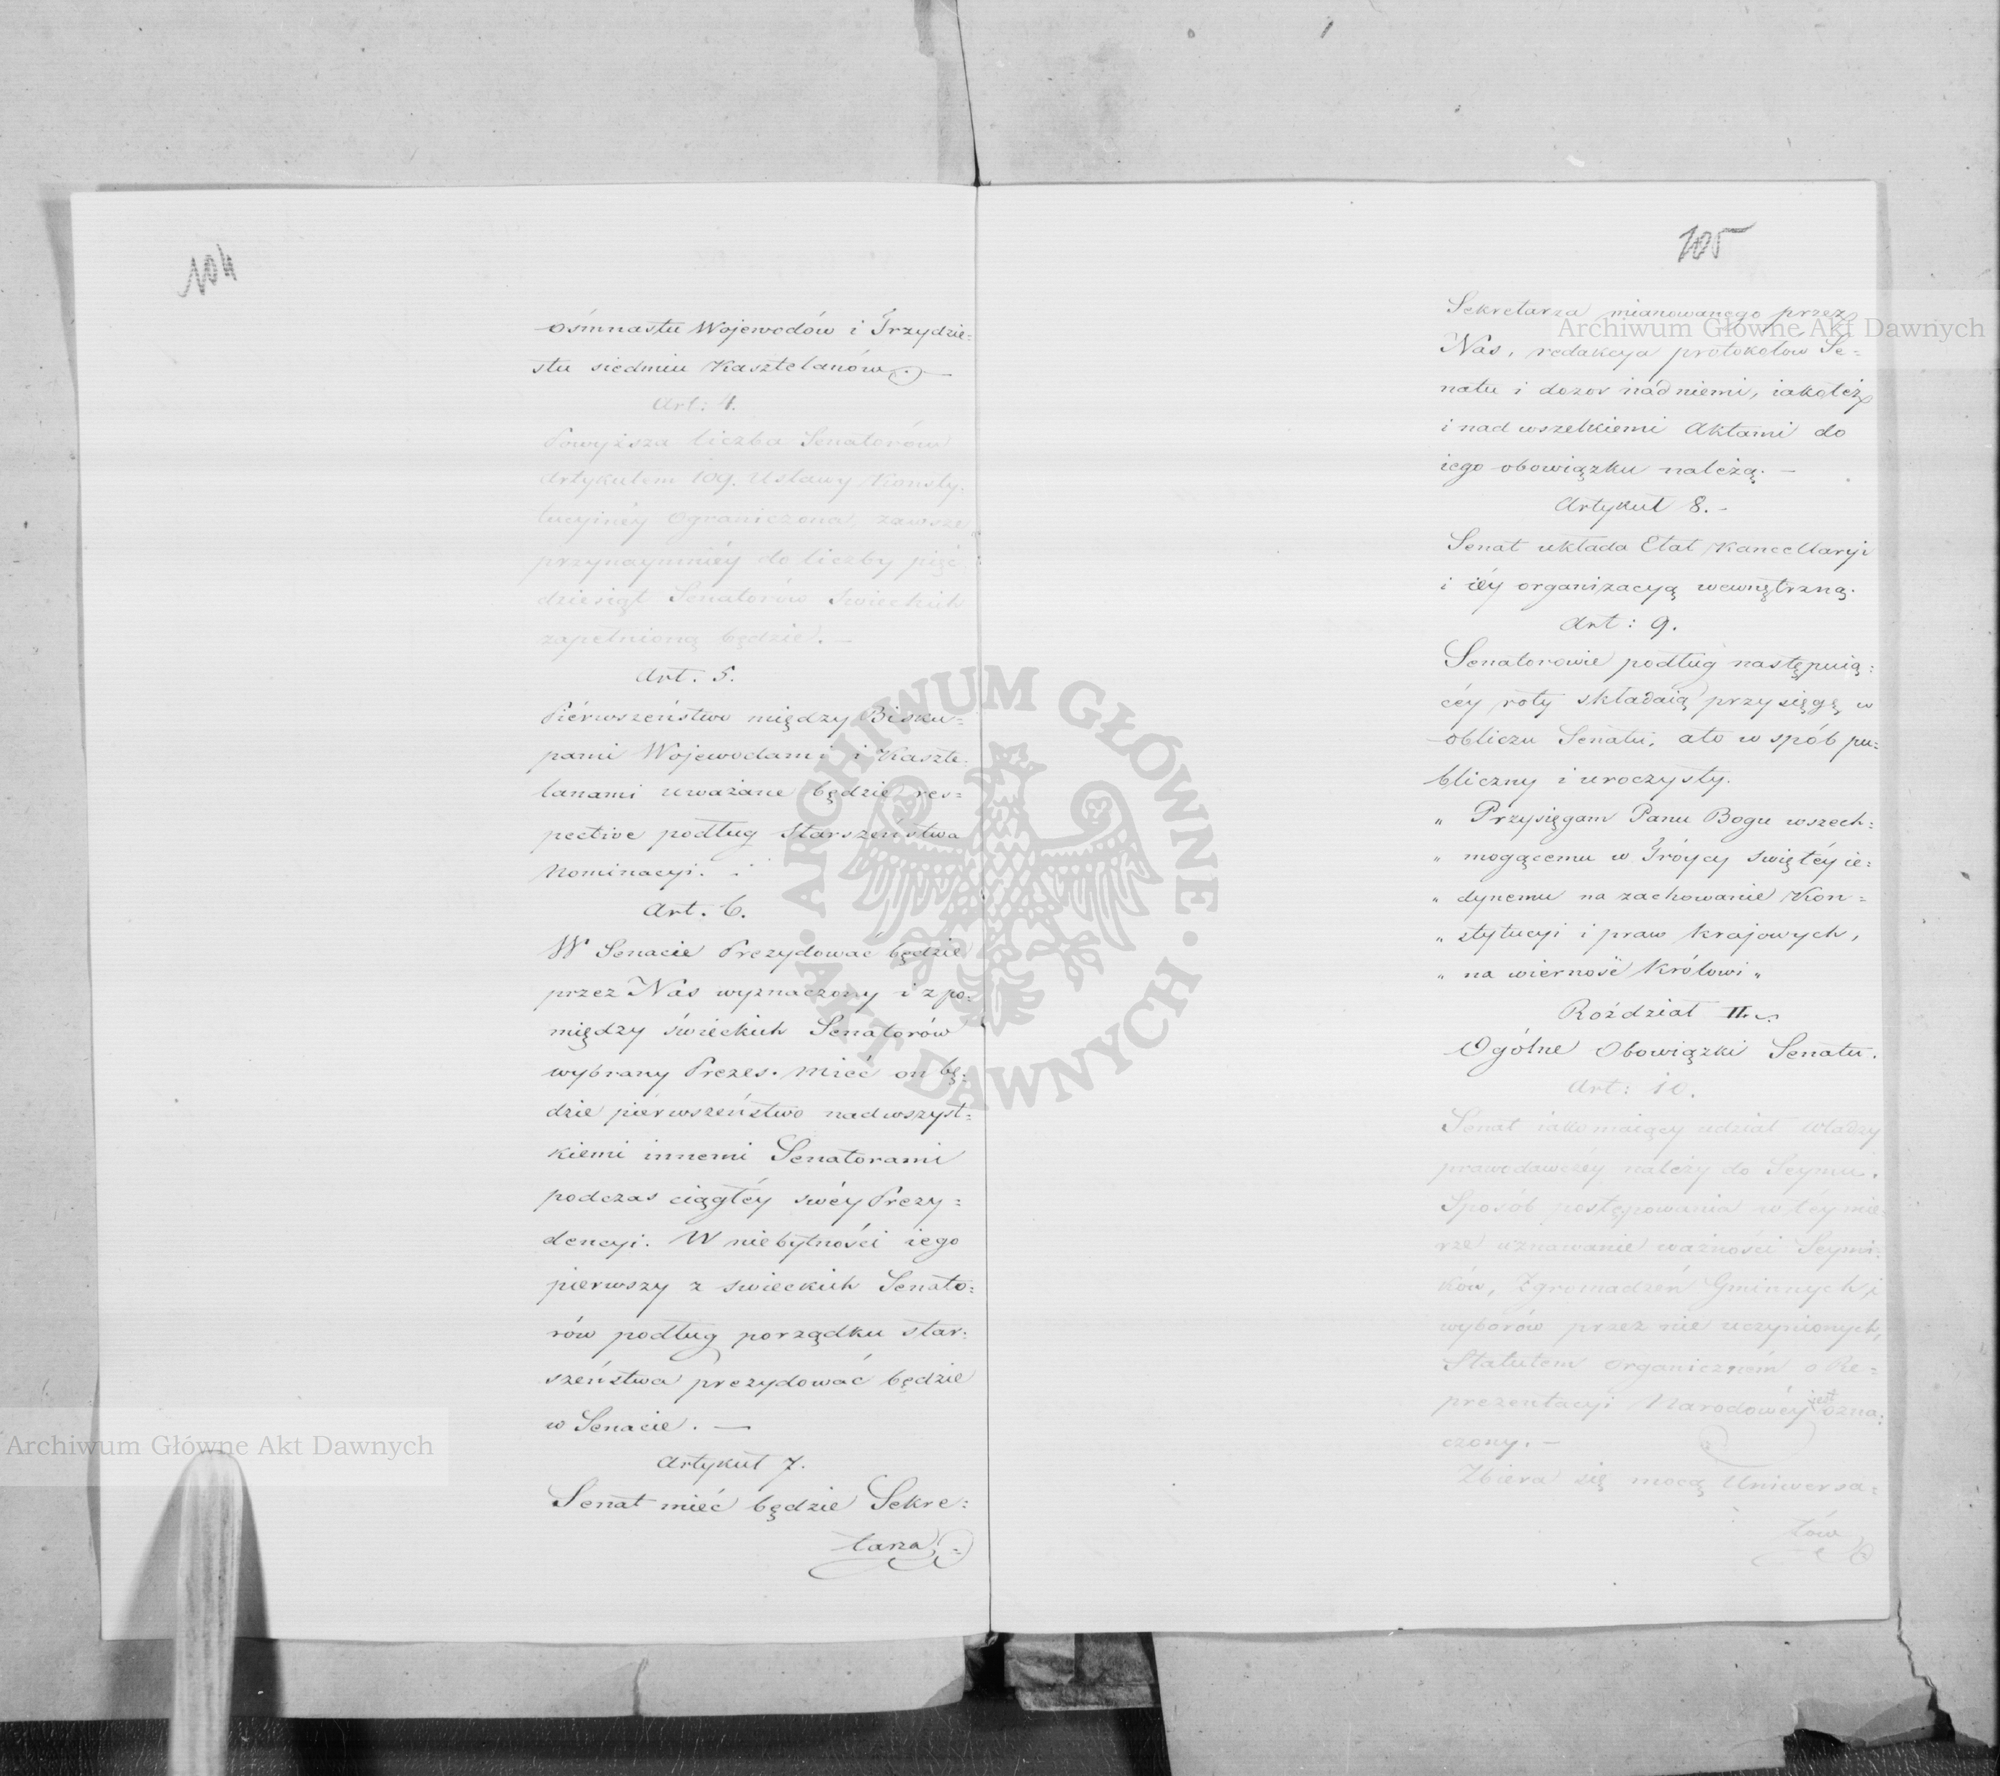 104
ośmnastu Wojewodów i Trzydzie=
stu siedmiu Kasztelanów. —
Art: 4.
Powyższa liczba Senatorów
Artykułem 109. Ustawy Konsty.
tucyinéy ograniczona, zawsze
przynaymniéy do liczby pięć
dziesiąt Senatorów Swieckich
zapełnioną będzie. —
Art. 5.
Piérwszeństwo między Bisku=
pami Wojewodami i Kaszte.
lanami uważane będzie res=
pective podług Starszeństwa
Nominacyi.
Art. 6.
W Senacie Prezydować będzie
przez Nas wyznaczony i z po=
między świeckich Senatorów
wybrany Prezes. Mieć on bę=
dzie piérwszeństwo nad wszyst=
kiemi innemi Senatorami
podczas ciągłéy swéy Prezy=
dencyi. W niebytności iego
pierwszy z swieckich Senato=
rów podług porządku star=
szeństwa prezydować będzie
w Senacie. —
Artykuł 7.
Senat mieć będzie Sekre=
tarza
105
Sekretarza mianowanego przez
Nas, redakcya protokołow Se=
natu i dozor nad niemi, iakoteż
i nad wszelkiemi Aktami do
iego obowiązku należą. —
Artykuł 8. -
Senat układa Etat Kancellaryi
i iéy organizacyą wewnętrzną.
Art: 9.
Senatorowie podług następuią=
céy roty składaią przysięgę w
obliczu Senatu, a to w spób pu=
bliczny i uroczysty.
„ Przysięgam Panu Bogu wszech=
„ mogącemu w Tróycy swiętéy ie=
„ dynemu na zachowanie Kon=
„ stytucyi i praw krajowych,
„ na wierność Królowi „
Roździał II.
Ogólne Obowiązki Senatu.
Art: 10.
Senat iako maiący udział władzy
prawodawczéy należy do Seymu.
Sposób postępowania w téy mie=
rze uznawanie ważności Seymi=
ków, Zgromadzeń Gminnych i
wyborów przez nie uczynionych,
Statutem organicznem o Re=
prezentacyi Narodowéy jest ozna=
czony. —
Zbiera się mocą Uniwersa=
łów
Archiwum Główne Akt Dawnych
Archiwum Główne Akt Dawnych
ARCHIWUM GŁÓWNE · AKT DAWNYCH ·